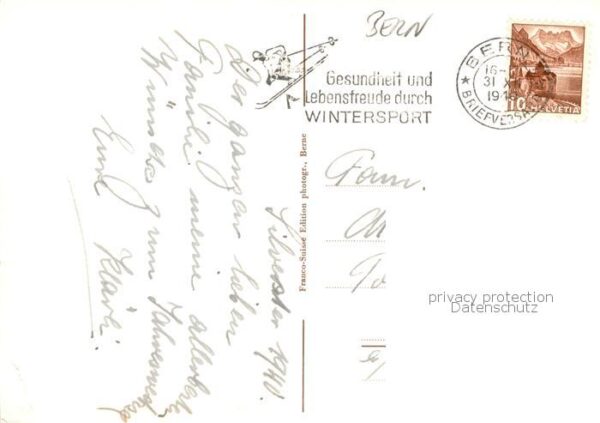 BERN
Gesundheit und
Lebensfreude durch
WINTERSPORT
BERN
16-
31 X
1940
BRIEFVERSAND
10 HELVETIA
Silvester 1940.
Der ganzen lieben
Familie meine allerbesten
Wünsche zum Jahreswechsel
Klärli
Franco-Suisse Edition photogr., Berne
Fam.
privacy protection
Datenschutz